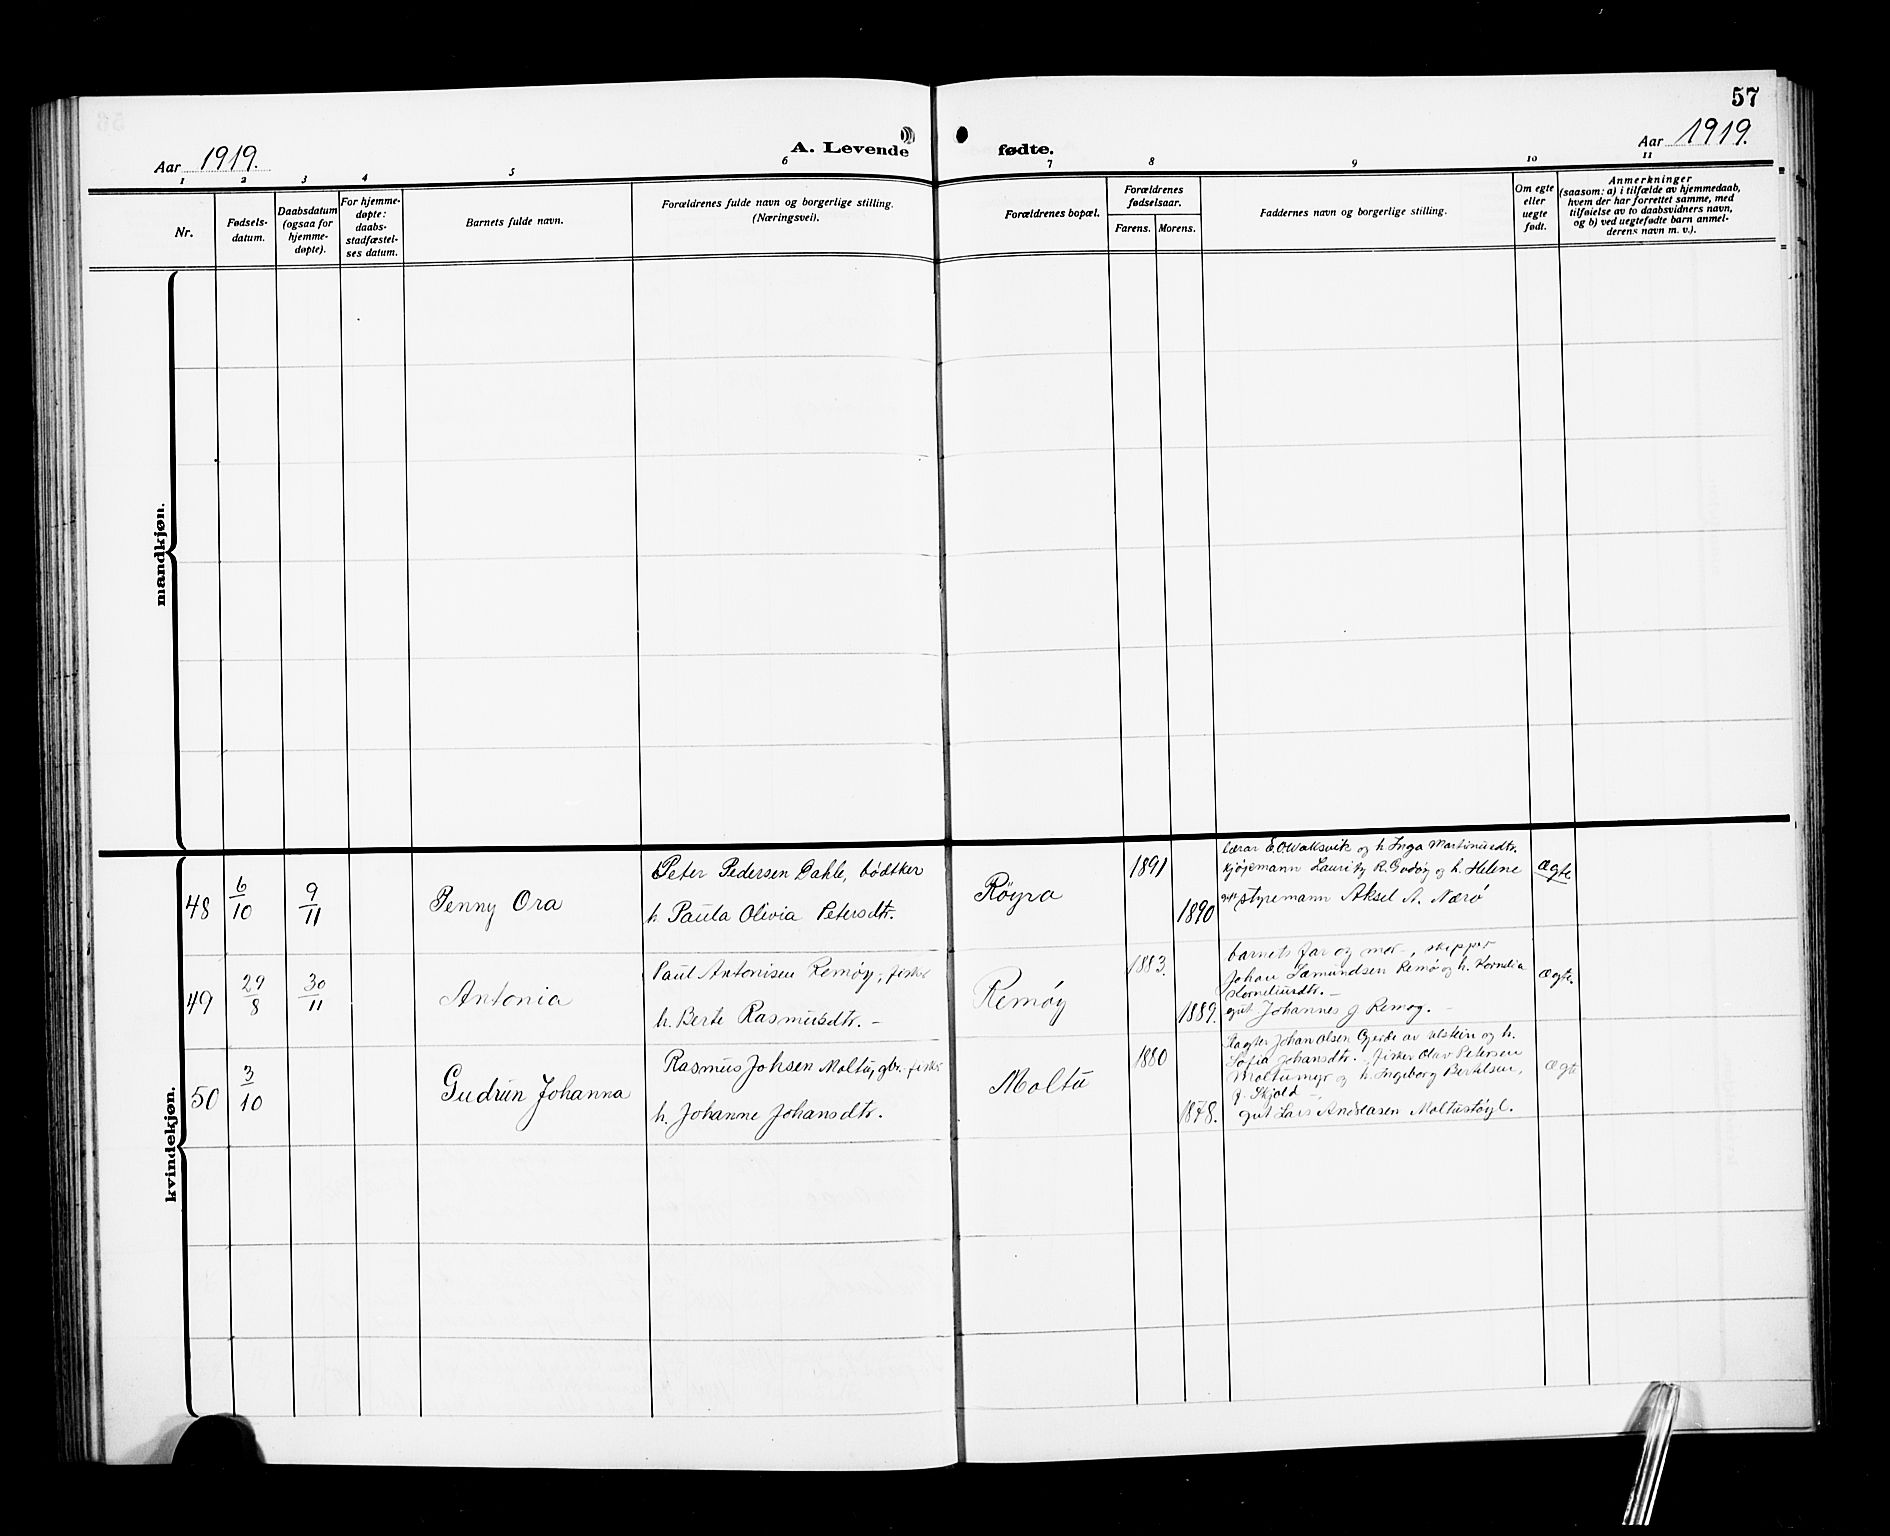 57
Aar 1919.
A. Levende fødte.
Aar 1919.
1 2 3 4 5 6 7 8 9 10 11
Nr.
Fødsels-
datum.
Daabsdatum
(ogsaa for
hjemme-
døpte).
For hjemme-
døpte:
daabs-
stadfæstel-
ses datum.
Barnets fulde navn.
Forældrenes fulde navn og borgerlige stilling.
(Næringsvei).
Forældrenes bopæl.
Forældrenes
fødselsaar.
Farens. Morens.
Faddernes navn og borgerlige stilling.
Om egte
eller
uegte
født.
Anmerkninger
(saasom: a) i tilfælde av hjemmedaab,
hvem der har forrettet samme, med
tilføielse av to daabsvidners navn,
og b) ved uegtefødte barn anmel-
derens navn m. v.).
mandkjøn.
kvindekjøn.
48
6/10
9/11
Penny Ora
Peter Pedersen Dahle, bødtker
h. Paula Olivia Petersdtr.
Røyra
1891
1890
lærar E. O. Valksvik og h. Inga Martinusdtr.
kjøpmann Lauritz R. Godøy og h. Helene
styremann Aksel A. Nærø
ægte
49
29/8
30/11
Antonia
Paul Antonisen Remøy, fisker
h. Berte Rasmusdtr. –
Remøy
1883.
1889.
barnets far og mor –, skipper
Johan Samundsen Remøy og h. Kornelia
Korneliusdtr. –
gut Johannes J Remøy. –
ægte.
50
3/10
Gudrun Johanna
Rasmus Johsen Moltu, gbr. fisker
h. Johanne Johansdtr.
Moltu
1880
1878.
Slagter Johan Olsen Gjerde av Ulstein og h.
Sofia Johansdtr. –, fisker Olav Petersen
Moltumyr og h. Ingeborg Bertelsen,
f. Skjold –,
gut Lars Andreasen Moltustøyl.
ægte